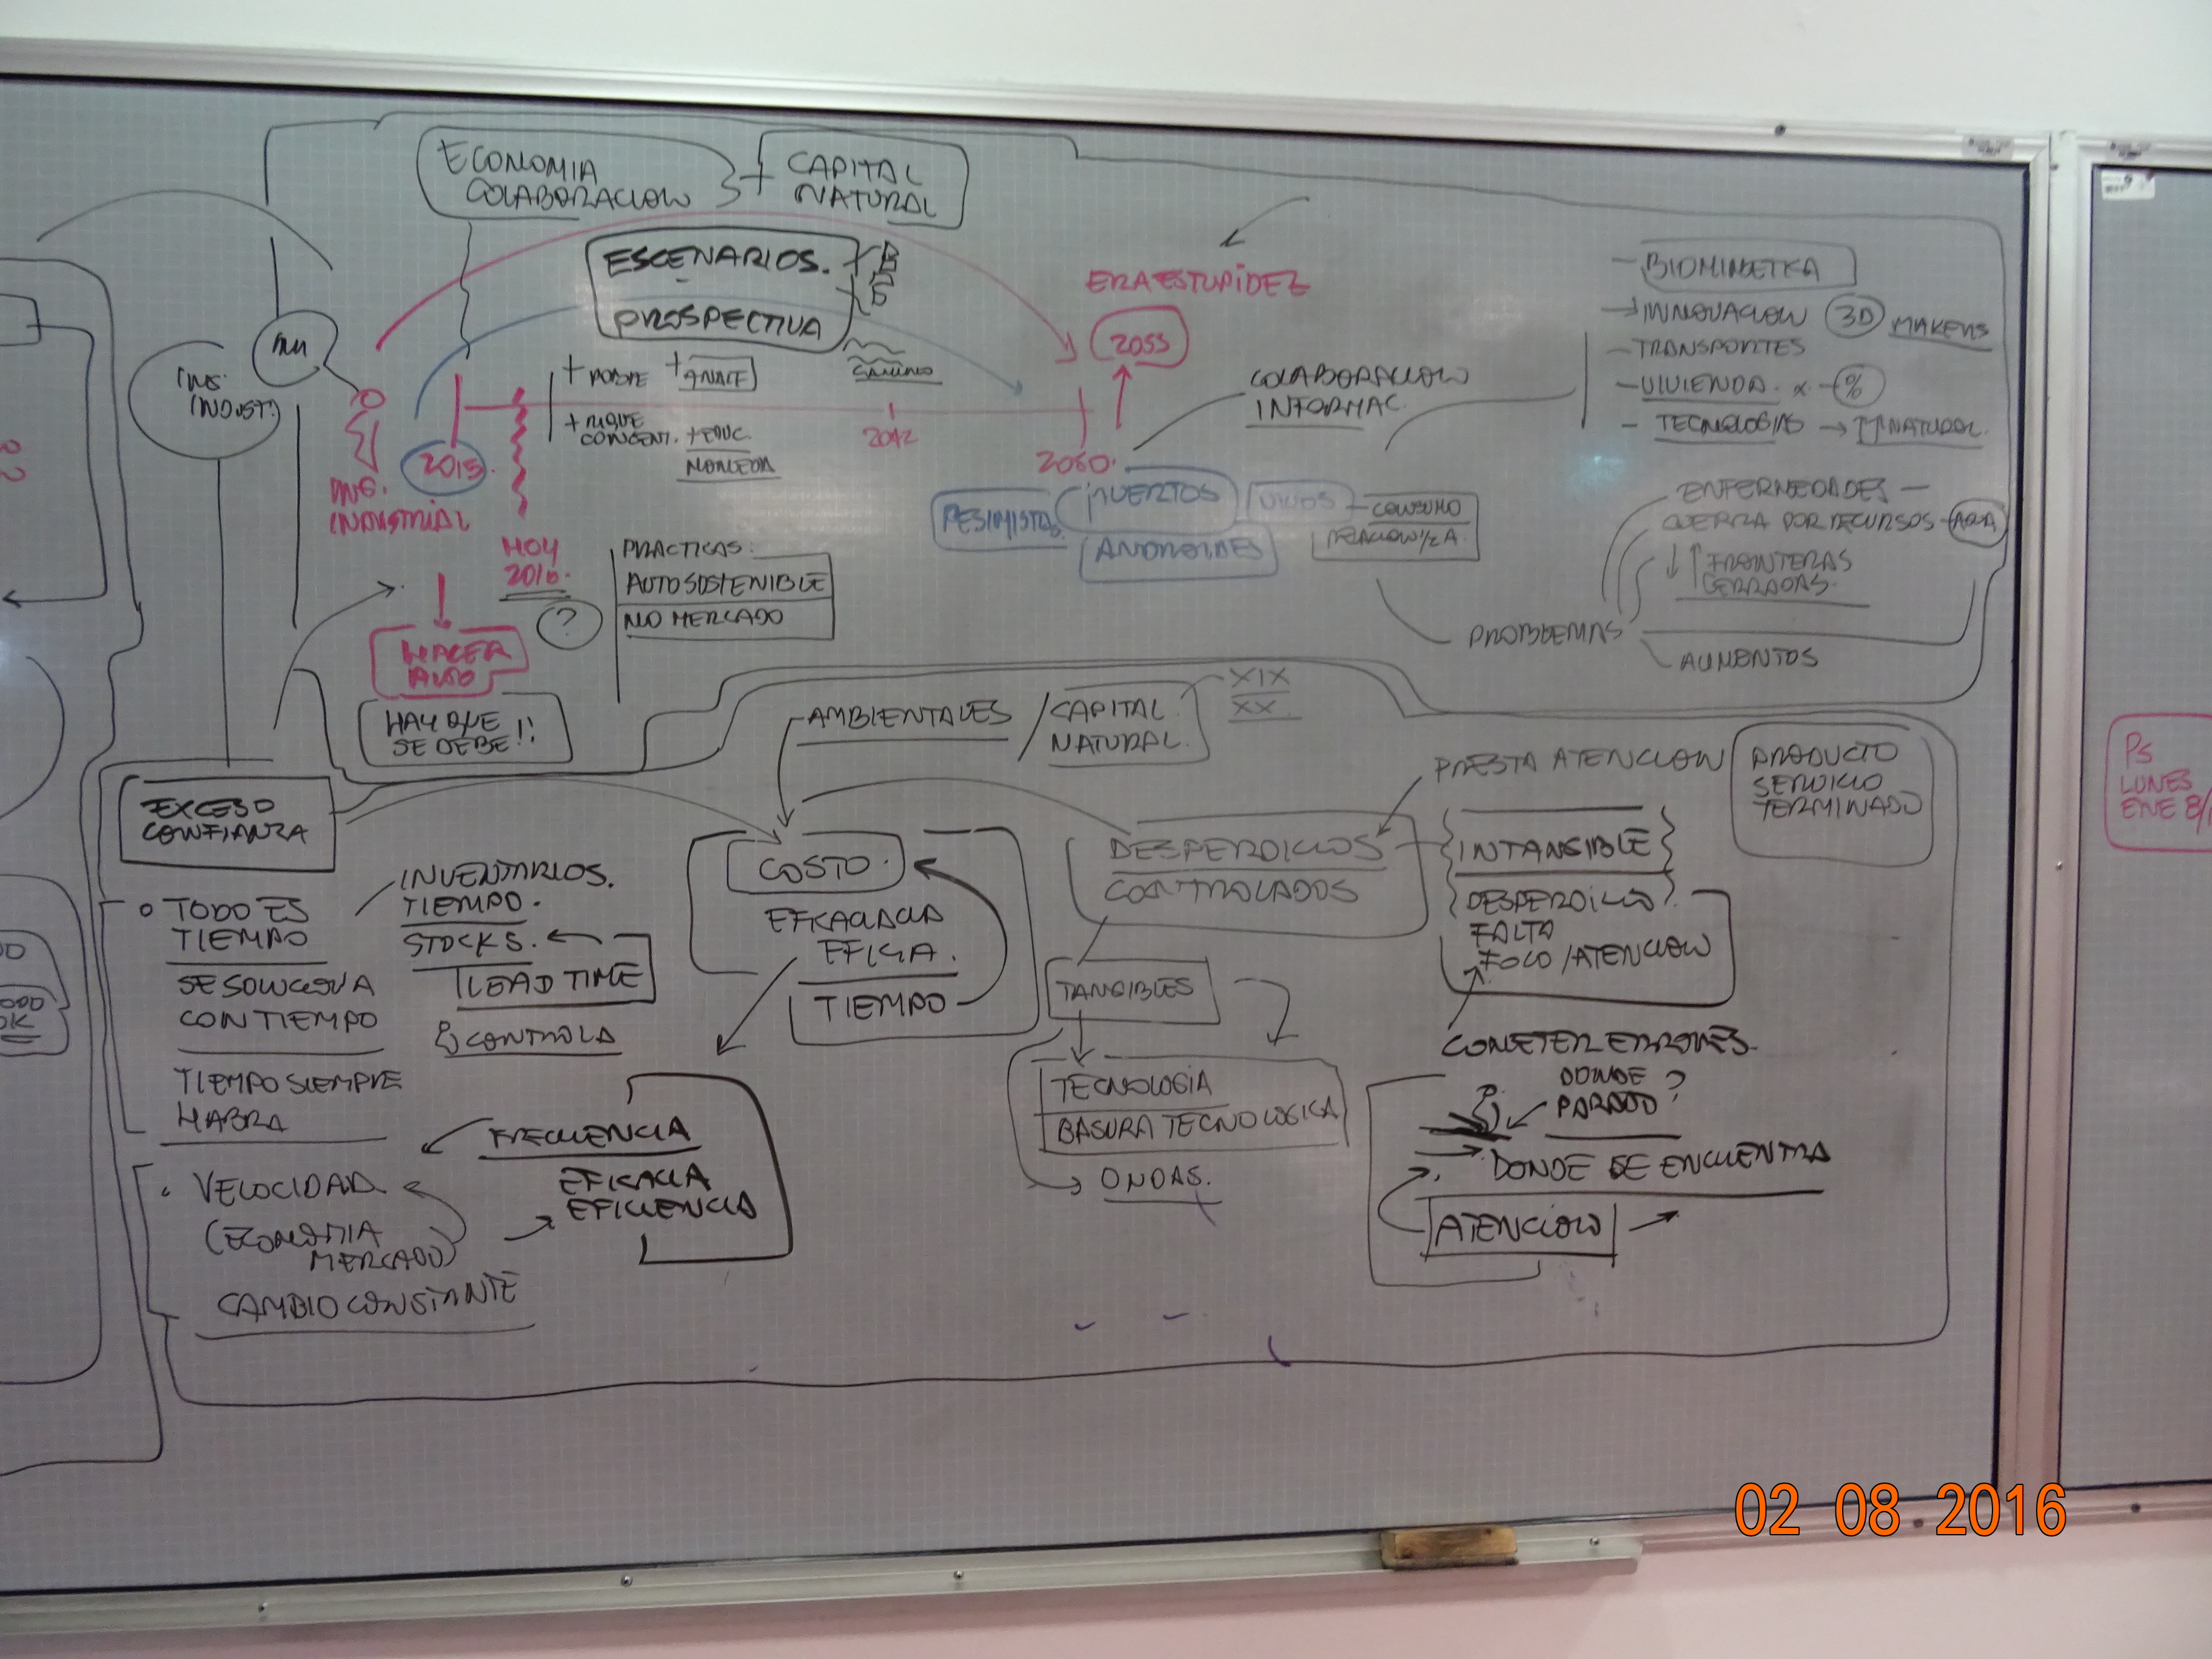 ECONOMIA
COLABORACION
+ CAPITAL
NATURAL
ESCENARIOS.
PROSPECTIVA
CAMINO
ERA ESTUPIDEZ
2055
ING.
INDUST.
ING.
INDUSTRIAL
2015.
+ POBRE
+ ANALF
+ RIQUE
CONCENT.
+ EDUC.
MONEDA
2042
2060.
HOY
2016.
?
COLABORACION
INFORMAC.
- BIOMIMETICA
INNOVACION 3D MAKERS
- TRANSPORTES
- VIVIENDA. x - %
- TECNOLOGIAS → NATURAL.
PESIMISTAS
MUERTOS
VIVOS
ANDROIDES
CONSUMO
ENFERMEDADES -
GUERRA POR RECURSOS - AGUA
FRONTERAS
CERRADAS.
PROBLEMAS
ALIMENTOS
PRACTICAS:
AUTOSOSTENIBLE
NO MERCADO
HACER
ALGO
HAY QUE
SE DEBE!!
AMBIENTALES / CAPITAL
NATURAL.
XIX
XX.
PRESTA ATENCION
PRODUCTO
SERVICIO
TERMINADO
PS
LUNES
ENE 8/
EXCESO
CONFIANZA
COSTO.
EFICACIA
EFICIA.
TIEMPO
DESPERDICIOS
CONTROLADOS
INTANGIBLE
DESPERDICIO
FALTA
FOCO / ATENCION
INVENTARIOS.
TIEMPO.
STOCKS.
LEAD TIME
CONTROLA
TODO ES
TIEMPO
SE SOLUCIONA
CON TIEMPO
TIEMPO SIEMPRE
HABRA
TANGIBLES
TECNOLOGIA
BASURA TECNOLOGICA
ONDAS.
COMETER ERRORES.
DONDE
PARADO ?
DONDE SE ENCUENTRA
ATENCION
FRECUENCIA
EFICACIA
EFICIENCIA
VELOCIDAD.
(ECONOMIA
MERCADO)
CAMBIO CONSTANTE
02 08 2016